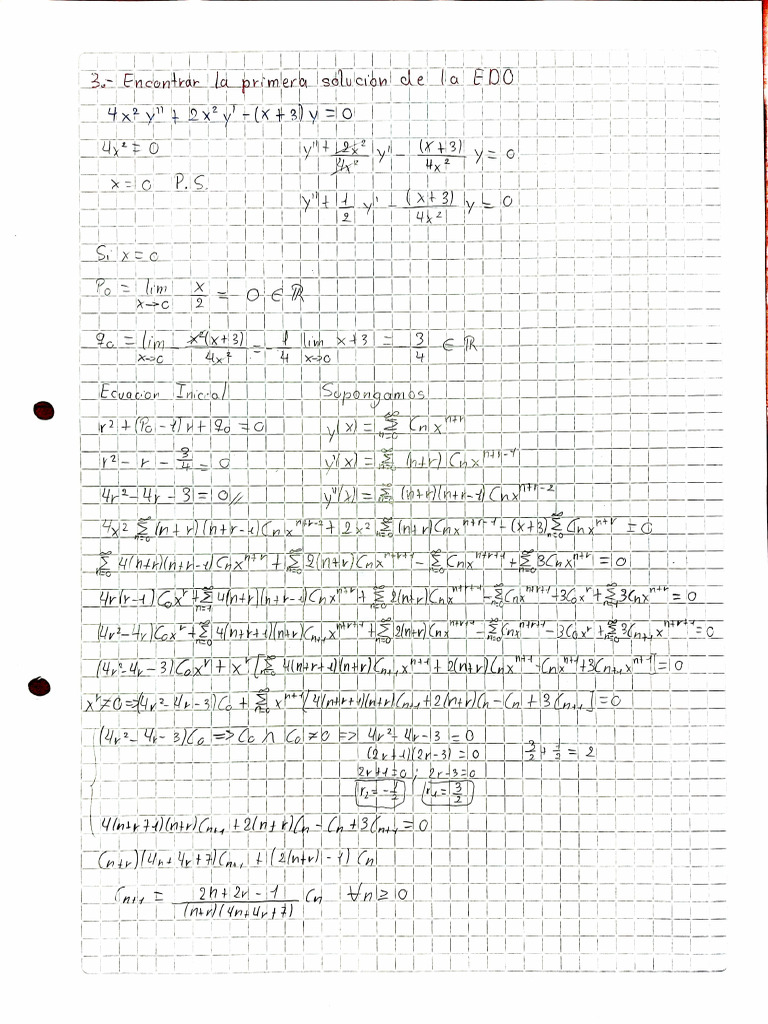 3.- Encontrar la primera solución de la EDO
4x² y'' + 2x² y' - (x+3) y = 0
4x² = 0      y'' + 2x²/4x² y' - (x+3)/4x² y = 0
x = 0   P.S.
y'' + 1/2 y' - (x+3)/4x² y = 0
Si x = 0
P₀ = lim x→0 x/2 = 0 ∈ ℝ
q₀ = lim x→0 - x²(x+3)/4x² = - 1/4 lim x→0 x+3 = - 3/4 ∈ ℝ
Ecuacion Inicial      Supongamos
r² + (P₀ - 1)r + q₀ = 0      y(x) = ∞Σn=0 Cn x^n+r
r² - r - 3/4 = 0      y'(x) = ∞Σn=0 (n+r) Cn x^n+r-1
4r² - 4r - 3 = 0 //      y''(x) = ∞Σn=0 (n+r)(n+r-1) Cn x^n+r-2
4x² ∞Σn=0 (n+r)(n+r-1) Cn x^n+r-2 + 2x² ∞Σn=0 (n+r) Cn x^n+r-1 - (x+3) ∞Σn=0 Cn x^n+r = 0
∞Σn=0 4(n+r)(n+r-1) Cn x^n+r + ∞Σn=0 2(n+r) Cn x^n+r+1 - ∞Σn=0 Cn x^n+r+1 + ∞Σn=0 3Cn x^n+r = 0
4r(r-1) C₀x^r + ∞Σn=1 4(n+r)(n+r-1) Cn x^n+r + ∞Σn=0 2(n+r) Cn x^n+r+1 - ∞Σn=0 Cn x^n+r+1 + 3C₀x^r + ∞Σn=1 3Cn x^n+r = 0
(4r²-4r) C₀x^r + ∞Σn=0 4(n+r+1)(n+r) Cn+1 x^n+r+1 + ∞Σn=0 2(n+r) Cn x^n+r+1 - ∞Σn=0 Cn x^n+r+1 - 3C₀x^r + ∞Σn=0 3Cn+1 x^n+r+1 = 0
(4r²-4r-3) C₀x^r + x^r [∞Σn=0 4(n+r+1)(n+r) Cn+1 x^n+1 + 2(n+r) Cn x^n+1 - Cn x^n+1 + 3Cn+1 x^n+1] = 0
x^r ≠ 0 => (4r²-4r-3) C₀ + ∞Σn=0 x^n+1 [4(n+r+1)(n+r) Cn+1 + 2(n+r) Cn - Cn + 3Cn+1] = 0
(4r² - 4r - 3) C₀ => C₀ ∩ C₀ ≠ 0 => 4r² - 4r - 3 = 0
(2r+1)(2r-3) = 0      3/2 + 1/2 = 2
2r+1=0 ; 2r-3=0
r₂ = -1/2   r₁ = 3/2
4(n+r+1)(n+r) Cn+1 + 2(n+r) Cn - Cn + 3Cn+1 = 0
(n+r)(4n+4r+7) Cn+1 + (2(n+r) - 1) Cn
Cn+1 = 2n+2r-1/(n+r)(4n+4r+7) Cn   ∀n ≥ 0